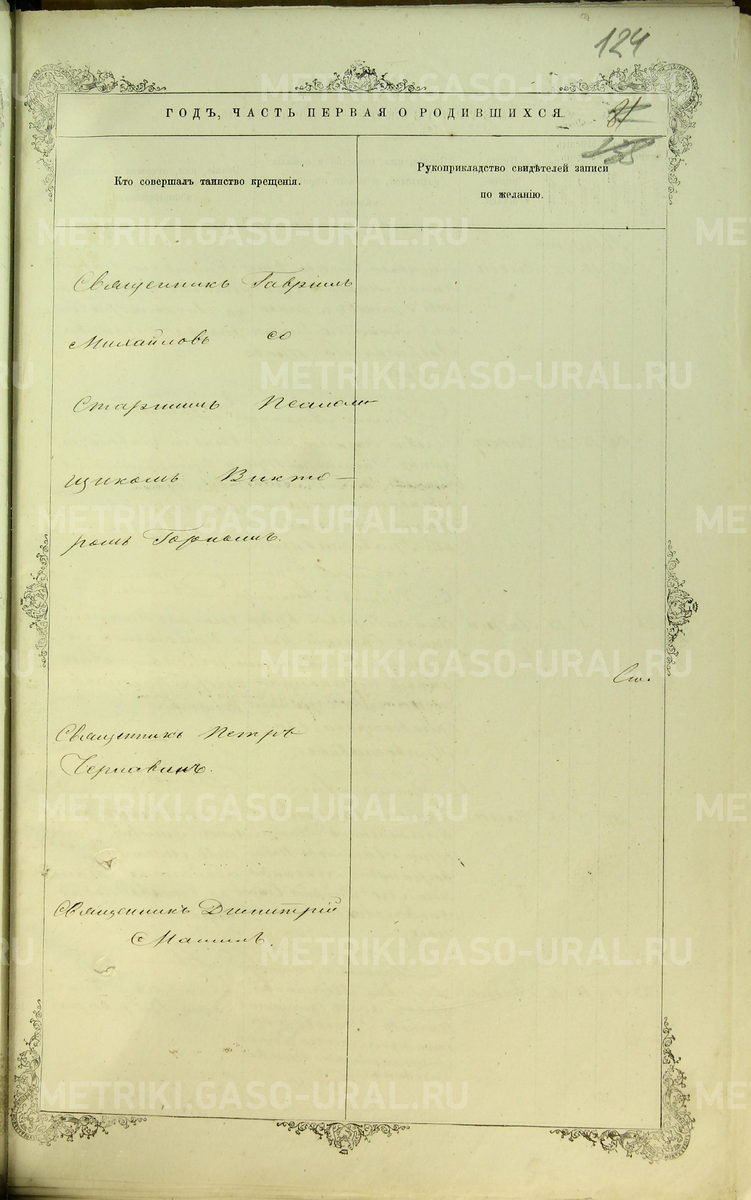 124
ГОДЪ, ЧАСТЬ ПЕРВАЯ О РОДИВШИХСЯ
Кто совершалъ таинство крещенія.
Рукоприкладство свидѣтелей записи
по желанію.
Священникъ Гавріилъ
Михайловъ со
Старшимъ Псалом-
щикомъ Викто-
ромъ
Священникъ Петръ
Чернавинъ.
Священникъ Димитрій
METRIKI.GASO-URAL.RU